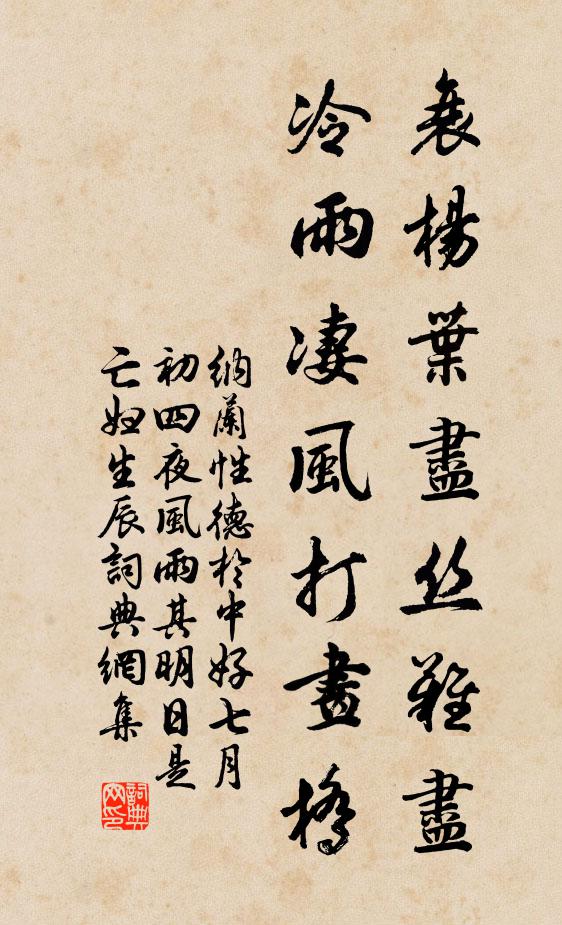 衰楊葉盡丝難盡
冷雨凄風打畫橋
納蘭性德於中好七月
初四夜風雨其明日是
亡妇生辰詞典網集
詞典
网印